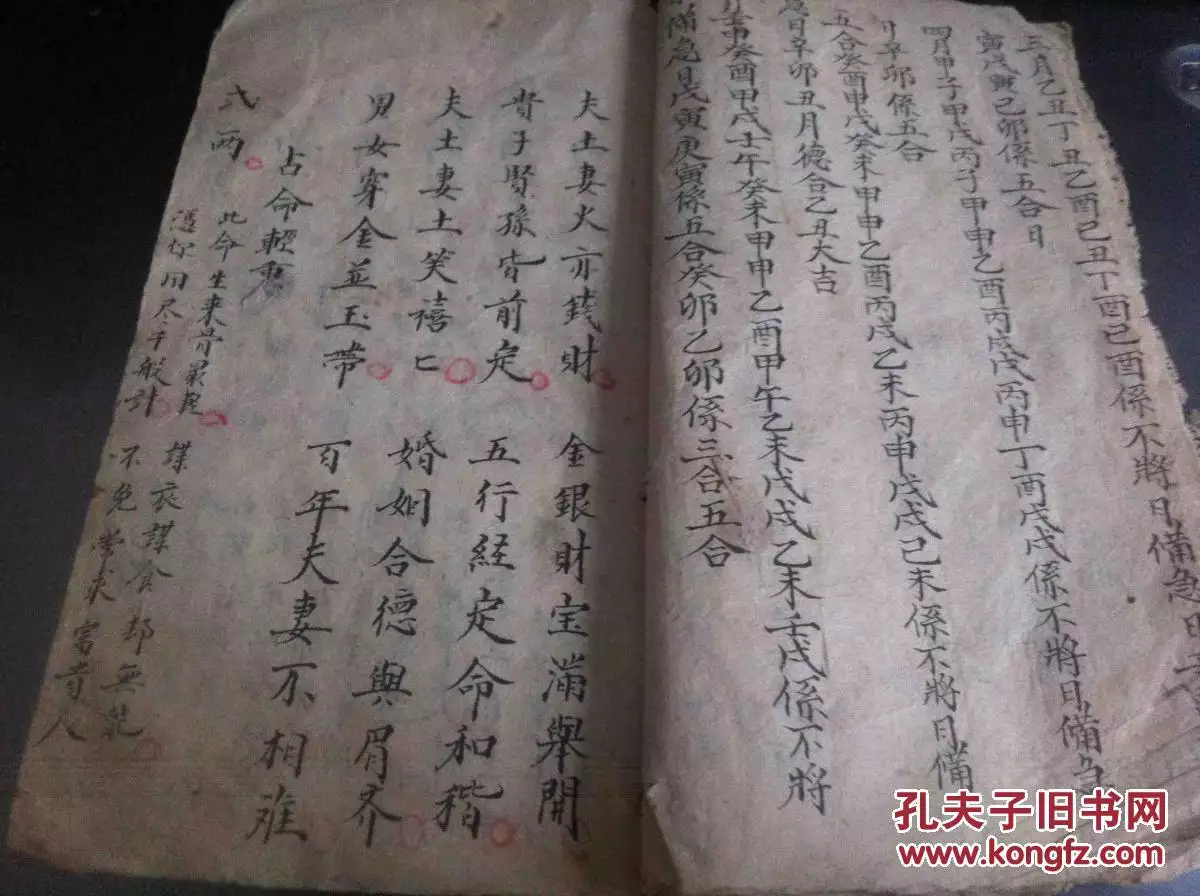 三月乙丑丁丑乙酉己丑丁酉己酉係不將日備急日
寅戊寅己卯係五合日
四月甲子甲戌丙子甲申乙酉丙戌戊丙申丁酉戊戌係不將日備急
日辛卯係五合
五合癸酉甲戌癸未甲申乙酉丙戌乙未丙申戊戌己未係不將日備
急日辛卯丑月德合乙丑大吉
壬申癸酉甲戌壬午癸未甲申乙酉甲午乙未戊戌乙未壬戌係不將
備急日戊寅庚寅係五合癸卯乙卯係三合五合
夫土妻火亦錢財 金銀財宝滿舉開
貴子賢孫皆前定 五行経定命和稭
夫土妻土笑禧匕 婚姻合德與眉齐
男女穿金並玉帶 百年夫妻不相难
占命輕重
弍両
此命生来骨最輕 謀衣謀食却無能
憑你用尽千般計 不免營求富貴人
孔夫子旧书网
www.kongfz.com